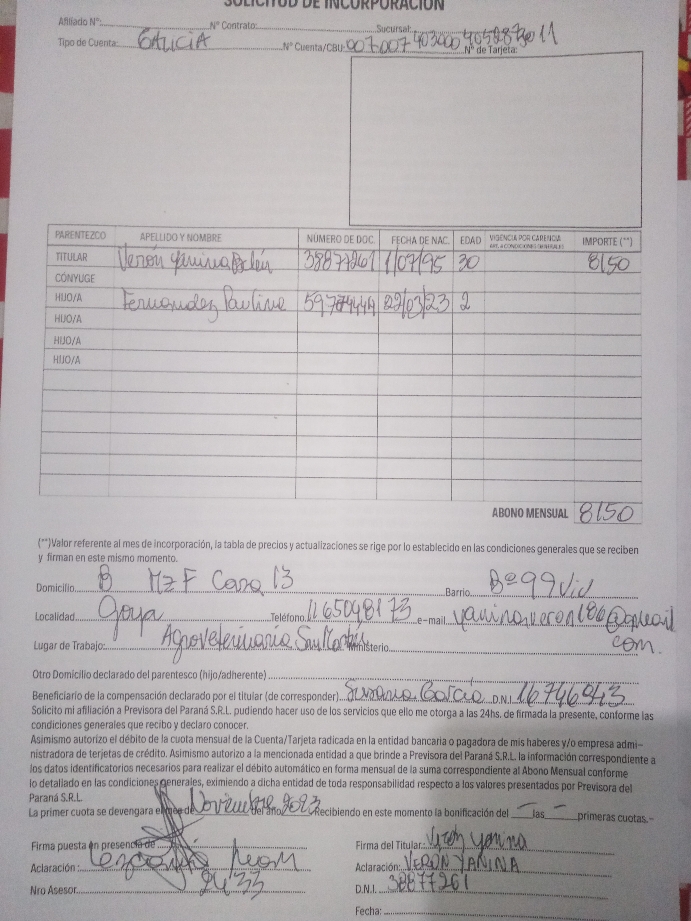 SOLICITUD DE INCORPORACIÓN
Afiliado Nº: Nº Contrato: Sucursal:
Tipo de Cuenta: GALICIA Nº Cuenta/CBU: 007007 Nº de Tarjeta: 11
PARENTEZCO APELLIDO Y NOMBRE NUMERO DE DOC. FECHA DE NAC. EDAD VIGENCIA POR CARENCIA IMPORTE (**)
TITULAR Verón Yanina Belén 38877261 1/07/95 30 8150
CÓNYUGE
HIJO/A Fernandez Paulina 22/03/23 2
HIJO/A
HIJO/A
HIJO/A
ABONO MENSUAL 8150
(**)Valor referente al mes de incorporación, la tabla de precios y actualizaciones se rige por lo establecido en las condiciones generales que se reciben
y firman en este mismo momento.
Domicilio B Mz F Casa 13 Barrio Bº 99 Viv
Localidad Goya Teléfono. 1165048173 e-mail yanina.veron186@gmail
com.
Lugar de Trabajo: Agroveterinaria San Martin Ministerio
Otro Domicilio declarado del parentesco (hijo/adherente)
Beneficiario de la compensación declarado por el titular (de corresponder) Susana Garcia D.N.I. 16746943
Solicito mi afiliación a Previsora del Paraná S.R.L. pudiendo hacer uso de los servicios que ello me otorga a las 24hs. de firmada la presente, conforme las
condiciones generales que recibo y declaro conocer.
Asimismo autorizo el débito de la cuota mensual de la Cuenta/Tarjeta radicada en la entidad bancaria o pagadora de mis haberes y/o empresa admi-
nistradora de terjetas de crédito. Asimismo autorizo a la mencionada entidad a que brinde a Previsora del Paraná S.R.L. la información correspondiente a
los datos identificatorios necesarios para realizar el débito automático en forma mensual de la suma correspondiente al Abono Mensual conforme
lo detallado en las condiciones generales, eximiendo a dicha entidad de toda responsabilidad respecto a los valores presentados por Previsora del
Paraná S.R.L.
La primer cuota se devengara el mes de Noviembre del año 2023 Recibiendo en este momento la bonificación del — las — primeras cuotas.-
Firma puesta en presencia de Firma del Titular: Verón Yanina
Aclaración: Aclaración: VERON YANINA
Nro Asesor 2433 D.N.I. 38877261
Fecha: